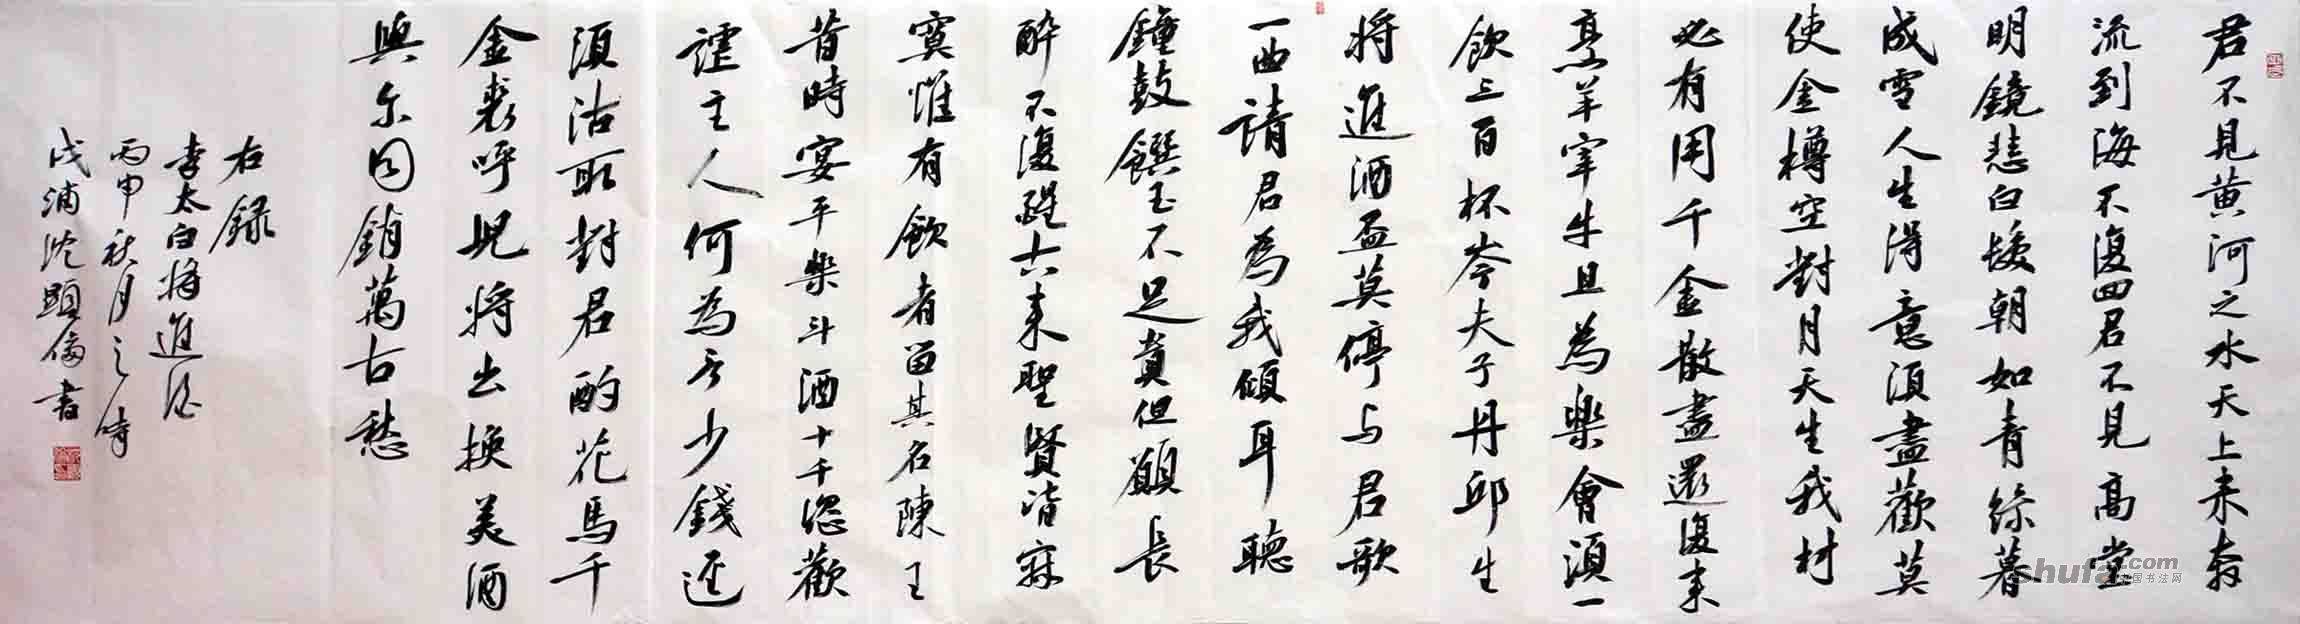 君不見黄河之水天上来奔
流到海不復回君不見高堂
明鏡悲白髮朝如青絲暮
成雪人生得意須盡歡莫
使金樽空對月天生我材
必有用千金散盡還復来
烹羊宰牛且為樂會須一
飲三百杯岑夫子丹邱生
将進酒盃莫停与君歌
一曲請君為我傾耳聽
鐘鼓饌玉不足貴但願長
醉不復醒古来聖賢皆寂
寞惟有飲者留其名陳王
昔時宴平樂斗酒十千恣歡
謔主人何為言少錢逕
須沽取對君酌花馬千
金裘呼児将出換美酒
與尔同銷萬古愁
右録
李太白将進酒
丙申秋月之時
戊浦沈顕倫書
shufa.com
中国书法网